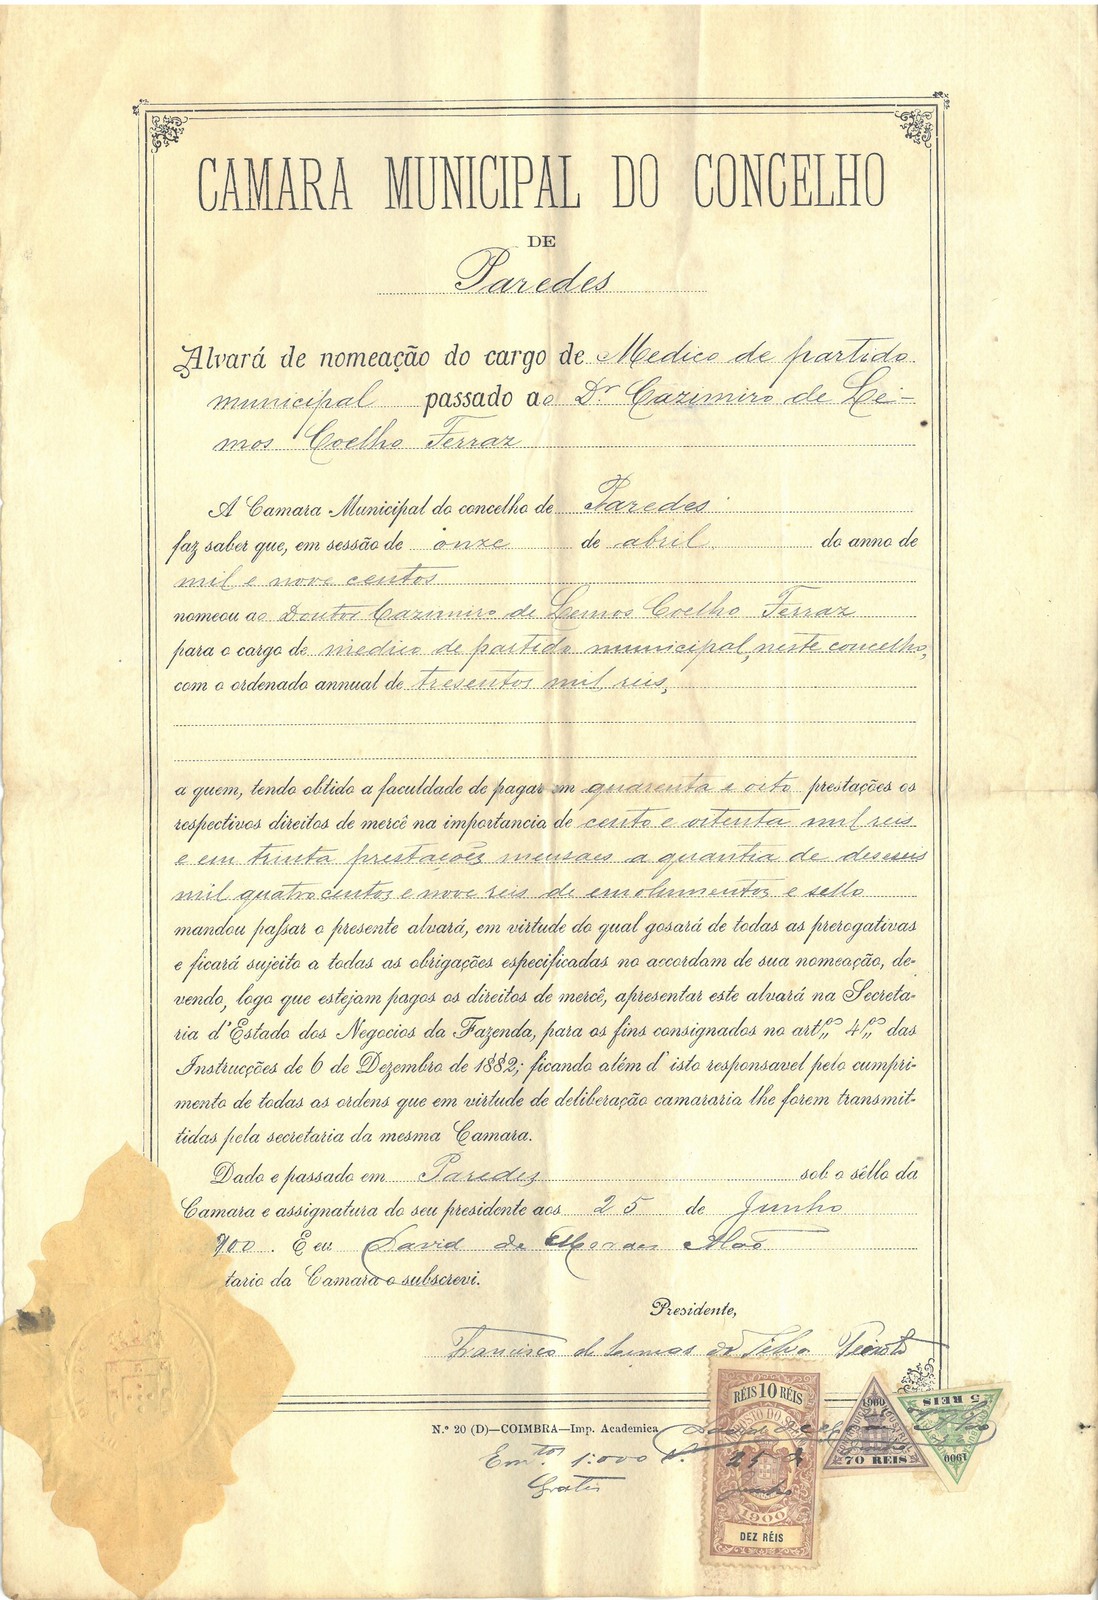 CAMARA MUNICIPAL DO CONCELHO
DE
Paredes
Alvará de nomeação do cargo de Medico de partido
municipal passado ao Dr Cazimiro de Le-
mos Coelho Ferraz
A Camara Municipal do concelho de Paredes
faz saber que, em sessão de onze de abril do anno de
mil e nove centos
nomeou ao Doutor Cazimiro de Lemos Coelho Ferraz
para o cargo de medico de partido municipal, neste concelho,
com o ordenado annual de tresentos mil reis,
a quem, tendo obtido a faculdade de pagar em quarenta e oito prestações os
respectivos direitos de mercê na importancia de cento e oitenta mil reis
e em trinta prestações mensaes a quantia de deseseis
mil quatrocentos e nove reis de emolumentos e sello
mandou passar o presente alvará, em virtude do qual gosará de todas as prerogativas
e ficará sujeito a todas as obrigações especificadas no accordam de sua nomeação, de-
vendo, logo que estejam pagos os direitos de mercê, apresentar este alvará na Secreta-
ria d'Estado dos Negocios da Fazenda, para os fins consignados no art.º 4.º das
Instrucções de 6 de Dezembro de 1882; ficando além d'isto responsavel pelo cumpri-
mento de todas as ordens que em virtude de deliberação camararia lhe forem transmit-
tidas pela secretaria da mesma Camara.
Dado e passado em Paredes sob o sêllo da
Camara e assignatura do seu presidente aos 25 de Junho
900. E eu David de Moraes
tario da Camara o subscrevi.
Presidente,
Francisco de Lemos da Silva Peixoto
N.º 20 (D)—COIMBRA—Imp. Academica
Em.tos 1:000 r.
Gratis
RÉIS 10 RÉIS
IMPOSTO DO SELLO
25 de
Junho
1900
DEZ RÉIS
1900
70 REIS
5 REIS
1900